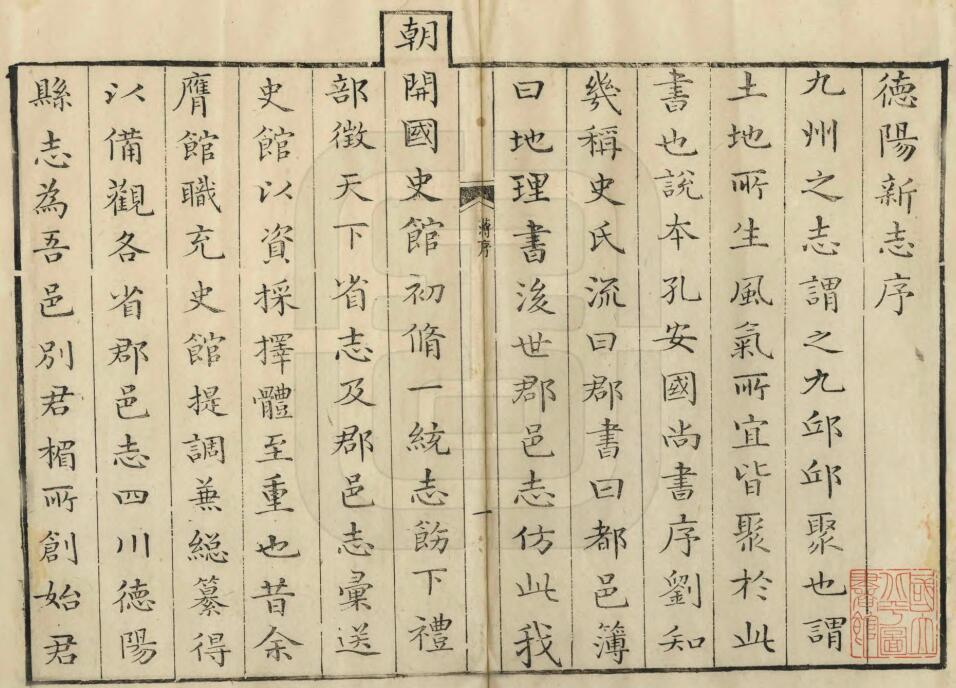 德陽新志序
九州之志謂之九邱邱聚也謂
土地所生風氣所宜皆聚於此
書也說本孔安國尚書序劉知
幾稱史氏流曰郡書曰都邑簿
曰地理書後世郡邑志仿此我
朝
開國史館初脩一統志飭下禮
部徵天下省志及郡邑志彙送
史館以資採擇體至重也昔余
膺館職充史館提調兼總纂得
以備觀各省郡邑志四川德陽
縣志為吾邑別君楣所創始君
蔣序
一